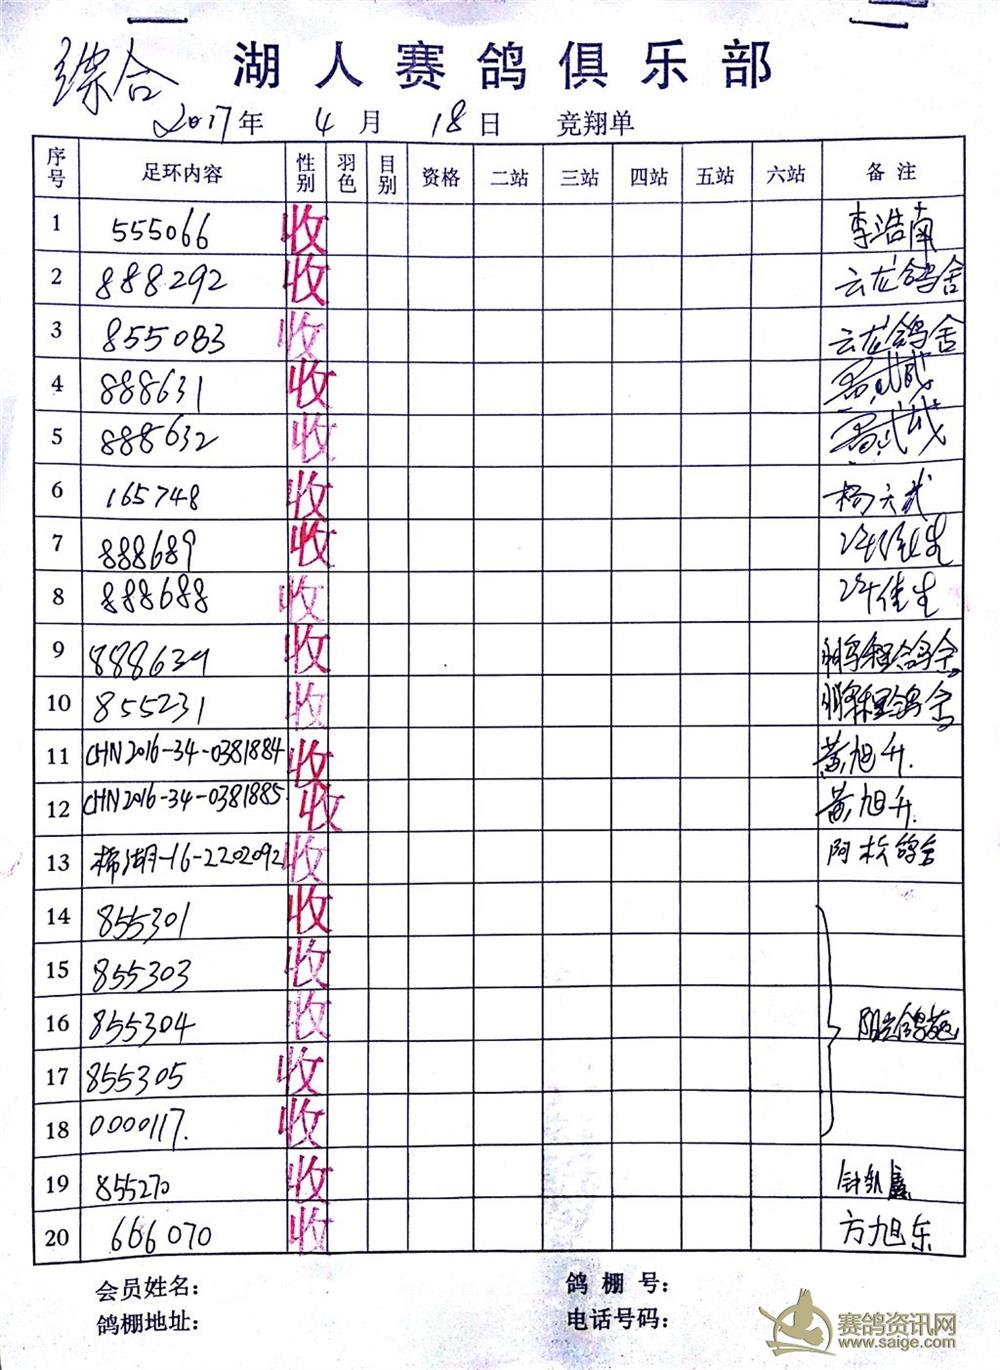 综合 湖人赛鸽俱乐部
2017年 4月 18日 竞翔单
序号 足环内容 性别 羽色 目别 资格 二站 三站 四站 五站 六站 备注
1 555066 收 李浩南
2 888292 收 云龙鸽舍
3 855083 收 云龙鸽舍
4 888631 收
5 888632 收
6 165748 收 杨六武
7 888689 收
8 888688 收
9 888639 收 鸽舍
10 855231 收 鸽舍
11 CHN2016-34-0381884 收 黄旭升.
12 CHN2016-34-0381885. 收 黄旭升.
13 棉湖-16-2202092 收 阿松鸽舍
14 855301 收
15 855303 收
16 855304 收 阳光鸽苑
17 855305 收
18 0000117. 收
19 855270 收
20 666070 收 方旭东
会员姓名： 鸽棚号：
鸽棚地址： 电话号码：
赛鸽资讯网
www.saige.com